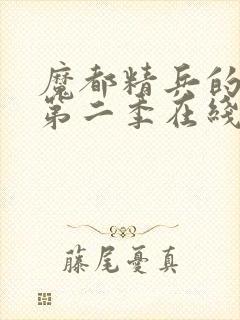 魔都精兵的
第二季在綫
藤尾憂真